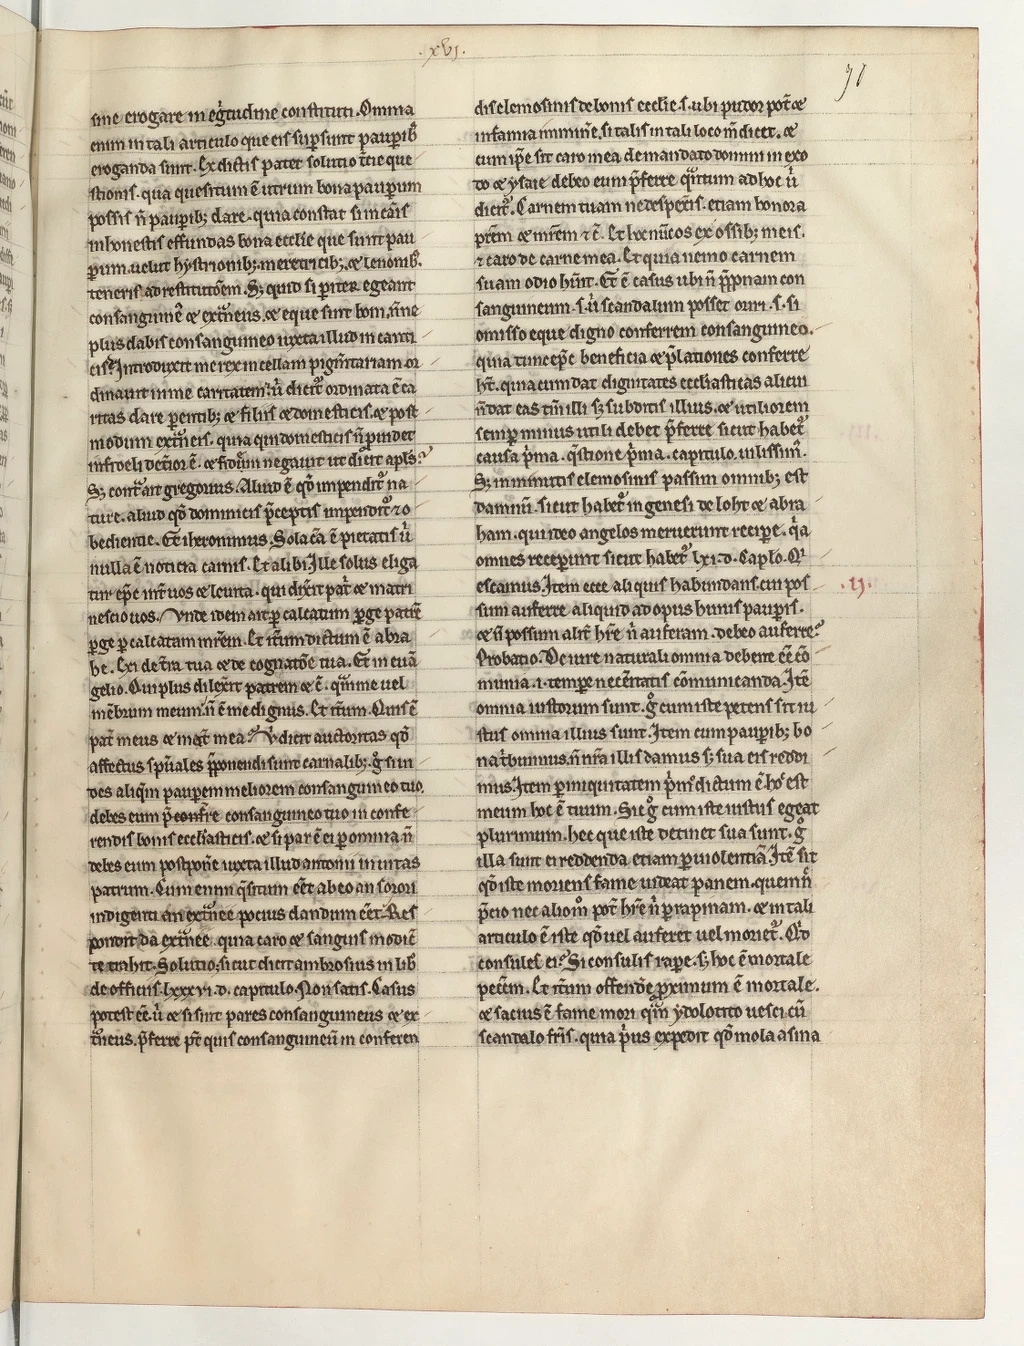 .xvi.
91
sine erogare in eg̾tudine constituti. Omnia
enim in tali articulo que eis suꝑsunt pauꝑibꝫ
eroganda sunt. Ex dictis patet solutio t̄cie que
stionis. qua quesitum ē utrum bona pauꝑum
possis ñ pauꝑibꝫ dare. quia constat si in cāis
inhonestis effundas bona ecclie que sunt pau
ꝑum. uelut hystrionibꝫ. meretricibꝫ. ⁊ lenonibꝫ.
teneris ad restitutōem. Sꝫ quid si ꝑiter egeant
consanguinꝰ ⁊ ext̾neus. ⁊ eque sint boni. ñne
plus dabis consanguineo iuxta illud in canti
cis. Introduxit me rex in cellam pigm̄tariam. or
dinauit in me caritatem. ů dicit᷑ ordinata ē ca
ritas dare ꝑentibꝫ ⁊ filiis ⁊ domesticis. ⁊ post
modum ext̾neis. quia qui domesticis ñ ꝓuidet
infideli det̾ior ē. ⁊ fidem negauit ut dicit apl̄s.
Sꝫ cont̾ ait gregorius. Aliud ē qď impendit᷑ na
ture. aliud qď dominicis p̄ceptis impendit᷑ ⁊ o
bediencie. Et iheronimus. Sola cā ē pietatis ů
nulla ē noticia carnis. Et alibi. Ille solus eliga
tur ep̄c int̾ uos ⁊ leuita. qui dixit pat̾ ⁊ matri
nescio uos. Vnde idem ait ꝑ calcatum ꝑge patrē
ꝑge ꝑ calcatam mr̄em. Et it̾um dictum ē abra
he. Exi de t̄ra tua ⁊ de cognatōe tua. Et in euā
gelio. Qui plus dilexit patrem ⁊ c̄. q̄m me uel
mēbrum meum. ñ ē me dignus. Et it̾um. Quis ē
pat̾ meus ⁊ mat̾ mea. Vͦ dicit auctoritas qď
affectus sp̄uales p̄ponendi sunt carnalibꝫ. g̊ si ui
des aliq̄m pauꝑem meliorem consanguineo tuo.
debes eum p̄ferre consanguineo tuo in confe
rendis bonis ecclīasticis. ⁊ si par ē ei ꝑ omnia. ñ
debes eum postpon̄e iuxta illud antonii in uitas
patrum. Cum enim q̄situm eēt ab eo an sorori
indigenti an ext̾nee pocius dandum eēt. Res
pondit da ext̾nee. quia caro ⁊ sanguis modic̄
te trahit. Solutio. sicut dicit ambrosius in libꝰ
de officiis. lxxxvi. d. capitulo. Non satis. Casus
potest eē. ů ⁊ si sint pares consanguineus ⁊ ex
t̾neus. p̄ferre pōt quis consanguineū in conferen
dis elemosinis de bonis ecclie. s. ubi pudor pot̾ ⁊
infamia imminē, si talis in tali loco m̄dicet. ⁊
cum ip̄e sit caro mea de mandato domini in exo
do ⁊ ysaie debeo eum p̄ferre q̄ntum ad hoc ů
dicit᷑. Carnem tuam ne despex̾is. etiam honora
pr̄em ⁊ mr̄em ⁊ c̄. Et hoc nūc os ex ossibꝫ meis.
⁊ caro de carne mea. Et quia nemo carnem
suam odio hūit. Et ē casus ubi ñ p̄ponam con
sanguineum. s. ů scandalum posset oriri. s. si
omisso eque digno conferrem consanguineo.
quia tunc ep̄c beneficia ⁊ p̄lationes conferre
ht̄. quia cum dat dignitates ecclīasticas alicui
ñ dat eas tm̄ illi sꝫ subditis illius. ⁊ utiliorem
semꝑ minus utili debet p̄ferre sicut habet᷑
causa p̾ma. q̄stione p̾ma. capitulo. uilissim̾.
Sꝫ in minutis elemosinis passim omnibꝫ est
dandum. sicut habet᷑ in genesi de loht ⁊ abra
ham. qui ideo angelos meruerunt reciꝑe. q̾a
omnes receꝑunt sicut habet᷑ lxi. d. Caplo. Qͥ
escamus. Item ecce aliquis habundans. cui pos
.ij.
sum auferre aliquid ad opus huius pauꝑis.
⁊ ñ possum alit̾ hr̄e ñ auferam. debeo auferre?
Probatio. De iure naturali omnia debent eē cō
munia. i. temꝑe necēitatis cōmunicanda. Itē
omnia iustorum sunt. g̊ cum iste petens sit iu
stus omnia illius sunt. Item cum pauꝑibꝫ bo
na t̾buimus. ñ nr̄a illis damus sꝫ sua eis reddi
mus. Item ꝑ iniquitatem p̾mꝰ dictum ē hoc est
meum hoc ē tuum. Sic g̊ cum iste iustus egeat
plurimum. hec que iste detinet sua sunt. g̊
illa sunt ei reddenda etiam ꝑ uiolentiā. Itē sit
qď iste moriens fame uideat panem. quem ñ
p̄cio nec alio mͦ pot̾ hr̄e ñ ꝑ rapinam. ⁊ in tali
articulo ē iste qď uel auferet uel moriet᷑. Qͥd
consules ei? Si consulis raꝑe. sꝫ hoc ē mortale
pct̄m. Et it̾um offendꝰe ꝓximum ē mortale.
⁊ sacius ē fame mori q̄m ydolotito uesci cū
scandalo fr̄is. quia p̾us expedit qď mola asina